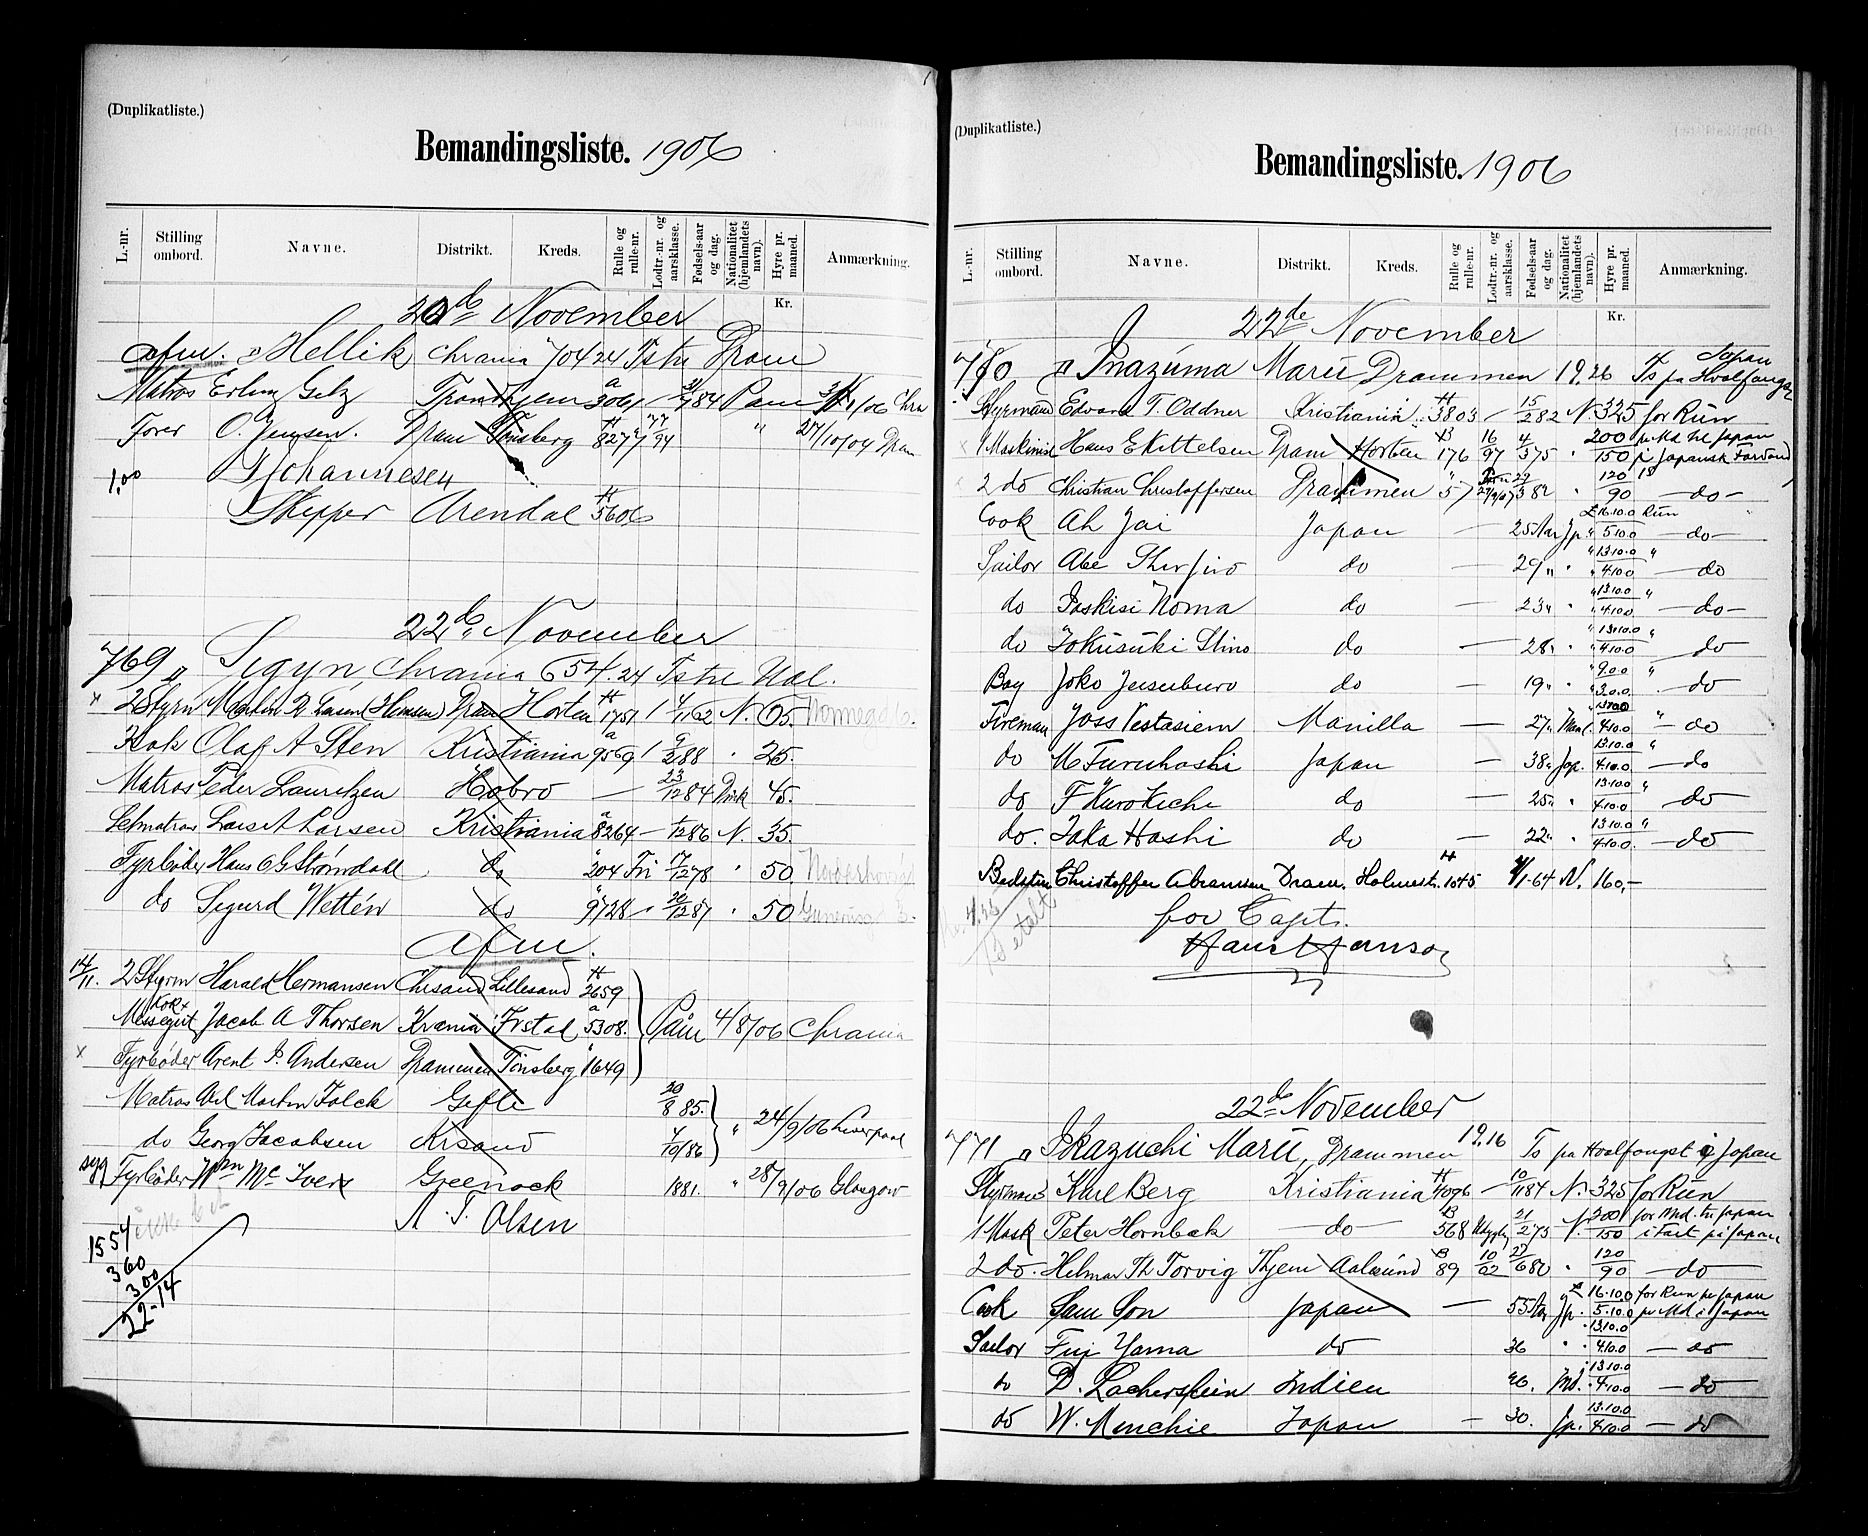 (Duplikatliste.)
Bemandingsliste. 1906
L.-nr. Stilling ombord. Navne. Distrikt. Kreds. Rulle og rulle-nr. Lodtr.-nr. og aarsklasse. Fødsels-aar og dag. Nationalitet (hjemlandets navn). Hyre pr. maaned. Anmærkning.
Kr.
20de November
Afm. "Hellik Chrania 704 24 Tstr Dram
Matros Erling Getz Trondhjem a 3061 84 Paam /06 Chra
Fører O. Jensen. Dram Tønsberg 827 94 " 27/10/04 Dram
1,00 Johannesen
Skipper Arendal H 5606
22de November
769 " Sigyn, Chrania 654.24 Tstr Ual.
x 2 Styrm Martin Larsen (Hansen) Dram Horten H 1751 1/11 62 N. 65.
Kok Olaf A Sten Kristiania a 9569 1 9/2 88 " 25.
Matros Peder Lauritzen Hobro — 23/12 84 Dmk 45.
Letmatros Lars A Larsen Kristiania a 8264 — 1/12 86 N. 35.
Fyrbøder Hans G Strømdahl do " 204 Fri 17/12 78 " 50.
do Sigurd Wettén do " 9728 — 20/12 87 " 50
Afm.
14/11. 2 Styrm Harald Hermansen Chrsand Lillesand H 2659
Kok x Messegut Jacob A Thorsen Krania a 5308. Paam 4/8/06 Chrania
x Fyrbøder Arent P. Andersen Drammen Tønsberg " 1649
Matros Axel Martin Falck Gefle 20/8 85.
do Georg Jacobsen Krsand 4/10/86 " 24/9/06 Liverpool
syg Fyrbøder Wm Mc Iver Greenock 1881. " 28/9/06 Glasgow
A. T. Olsen
1554
360
300
22-14
(Duplikatliste.)
Bemandingsliste. 1906
L.-nr. Stilling ombord. Navne. Distrikt. Kreds. Rulle og rulle-nr. Lodtr.-nr. og aarsklasse. Fødsels-aar og dag. Nationalitet (hjemlandets navn). Hyre pr. maaned. Anmærkning.
Kr.
22de November
770 "Inazuma Maru Drammen 19.26 Ts pa Hvalfangst Japan
Styrmand Edvard T. Oddner Kristiania H 3803 — 15/2 82 N. 325 for Run
1 Maskinist Hans E Kittelsen Dram Horten B 176 16/97 4/3 75 " 200/150 pr Md til Japan i Japansk Farvand
2 do Christian Christoffersen Drammen " 57 82 " 120/90 — do —
Cook Ah Jai Japan — 25 Aar Jp. £16.10.0/5.10.0 Run — do —
Sailor Abe do — 29 " " 13.10.0/4.10.0 " — do
do Noma do — 23 " " 13.10.0/4.10.0 " — do —
do Tokusuki do — 28 " " 13.10.0/4.10.0 " — do
Boy Joko do — 19 " " 9.0.0/3.0.0. " — do
Fireman Joss Vestasiem Manilla — 27 " Manl. 4.10.0 " — do
do M Furuhashi Japan — 38 " Jap. 13.10.0/4.10.0 " — do
do F Kurokichi do — 25 " " 13.10.0/4.10.0 " — do
do. Taka Hashi do — 22 " " 13.10.0/4.10.0. " — do
Bedstm Christoffer Abramsen Dram. Holmestr. H 1045 /1-64 N. 160,-
for Capt.
Hans Hanson
22de November
771 " Ikazuchi Maru, Drammen 19.16 Ts pa Hvalfangst i Japan
Styrmand Karl Berg Kristiania H 4096 — 10/11 84 N. 325 for Run
1 Mask Peter Hornbek — do — B 568 21/2 75 N. 200/150 for Md. til Japan i Fart pi Japan
2 do. Helmar Th Torvig Thjem Aalesund B 89 10/02 27/6 80 " 120/90 — do —
Cook Sam Son Japan — 55 Aar Jp. £16.10.0/5.10.0 for Run pr Japan pr Md i Japan
Sailor Fuji Yama do 36 " 13.10.0/4.10.0 — do
do D. Indien 26. Ind. 13.10.0/4.10.0 — do
do W. Menchie Japan — 30. Jp. 13.10.0/4.10.0 — do